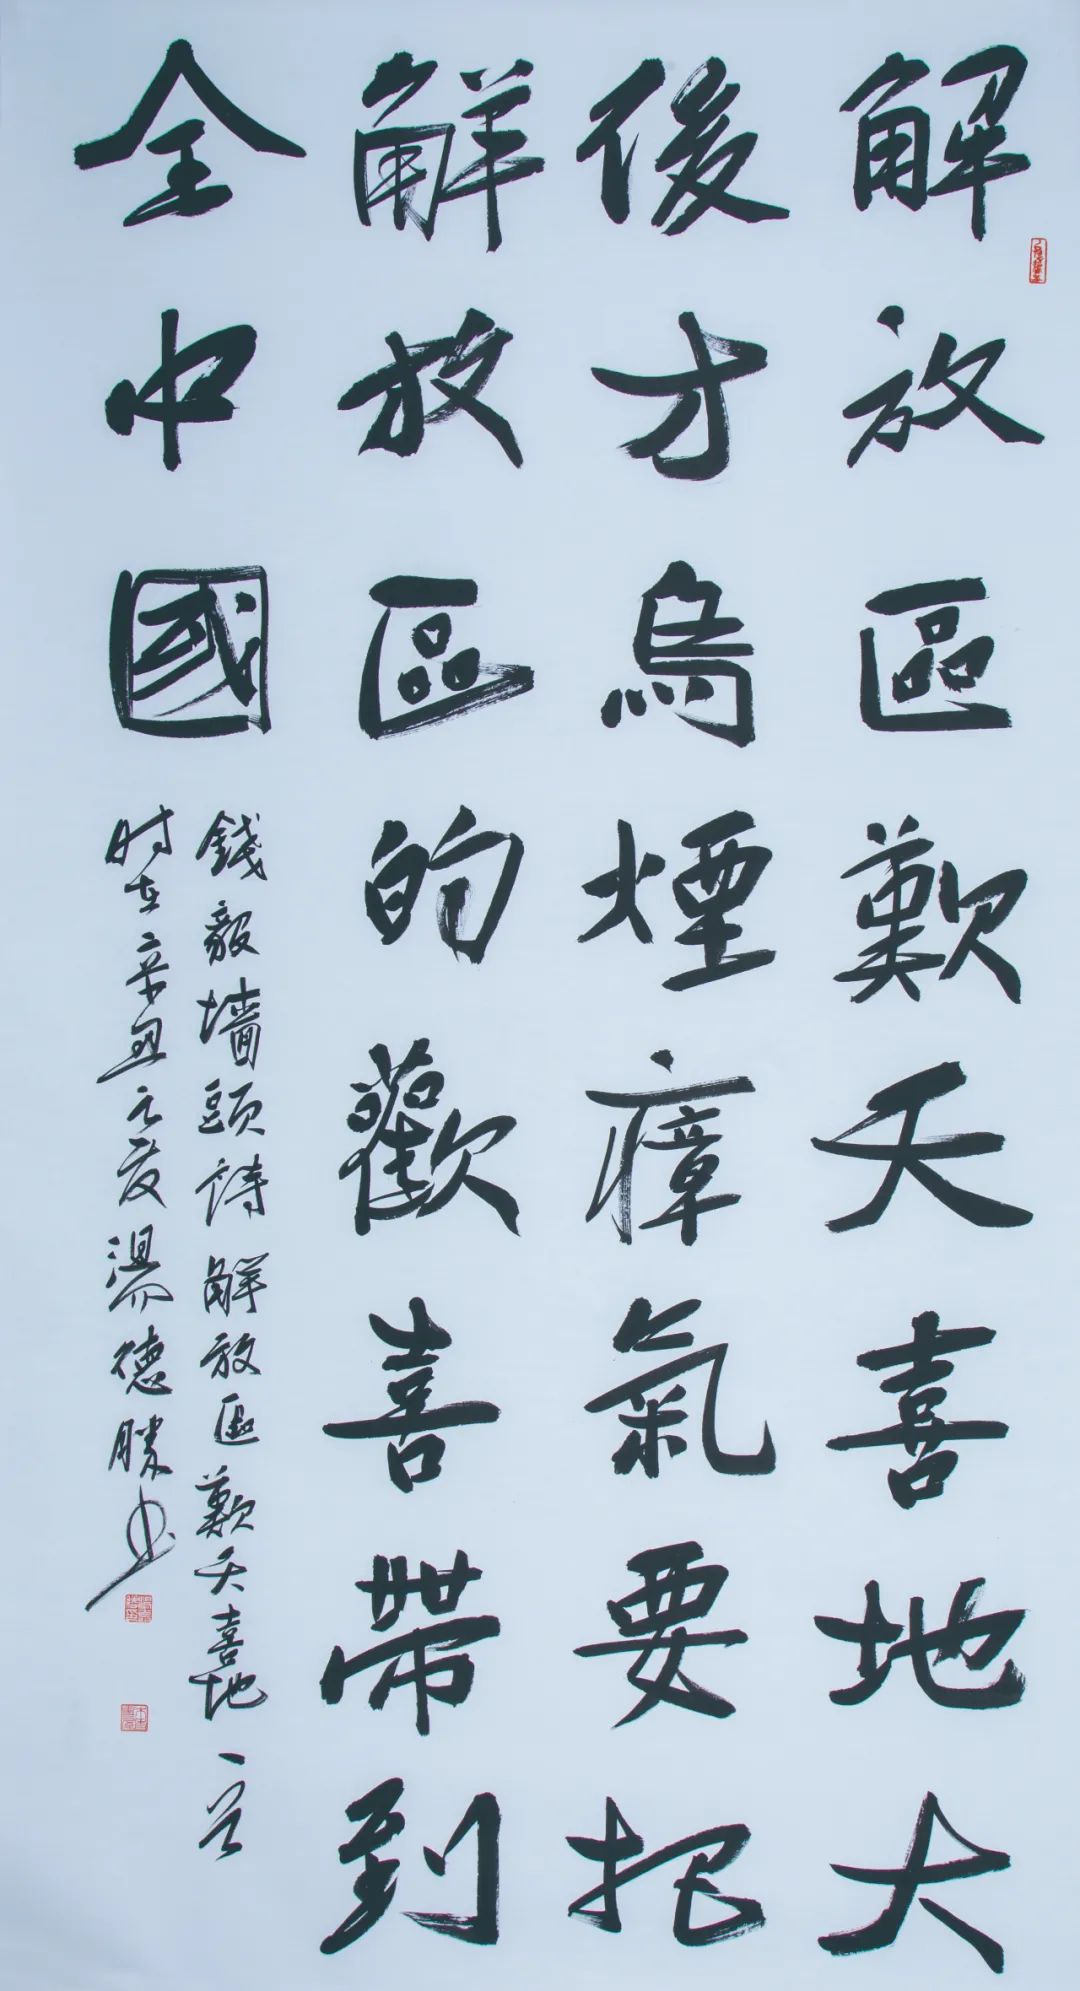 解放區歎天喜地大
後才烏煙瘴氣要把
解放區的歡喜帶到
全中國
錢毅墻頭詩解放區歎天喜地一首
时在辛丑之夏湯德勝书